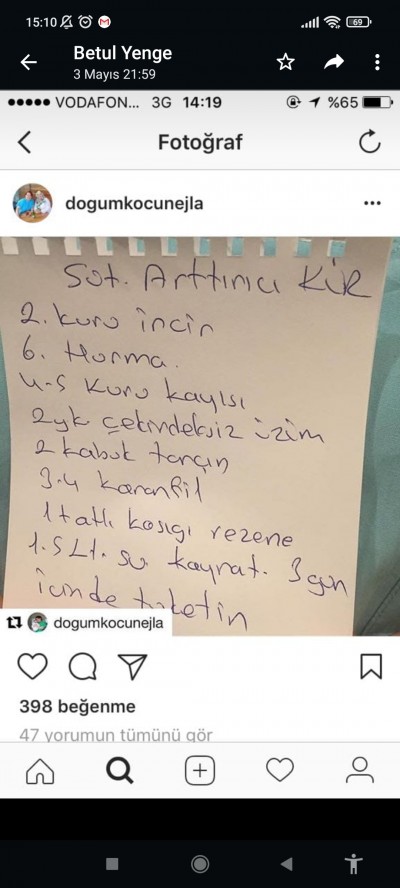 15:10
69
Betul Yenge
3 Mayıs 21:59
VODAFON... 3G 14:19 %65
Fotoğraf
dogumkocunejla
Süt. Arttırıcı KÜR
2. kuru incir
6. Hurma.
4-5 kuru kayısı
2 yk çekirdeksiz üzüm
2 kabuk tarçın
3-4 karanfil
1 tatlı kaşığı rezene
1.5 Lt. su kaynat. 3 gün
içinde tüketin
dogumkocunejla
398 beğenme
47 yorumun tümünü gör